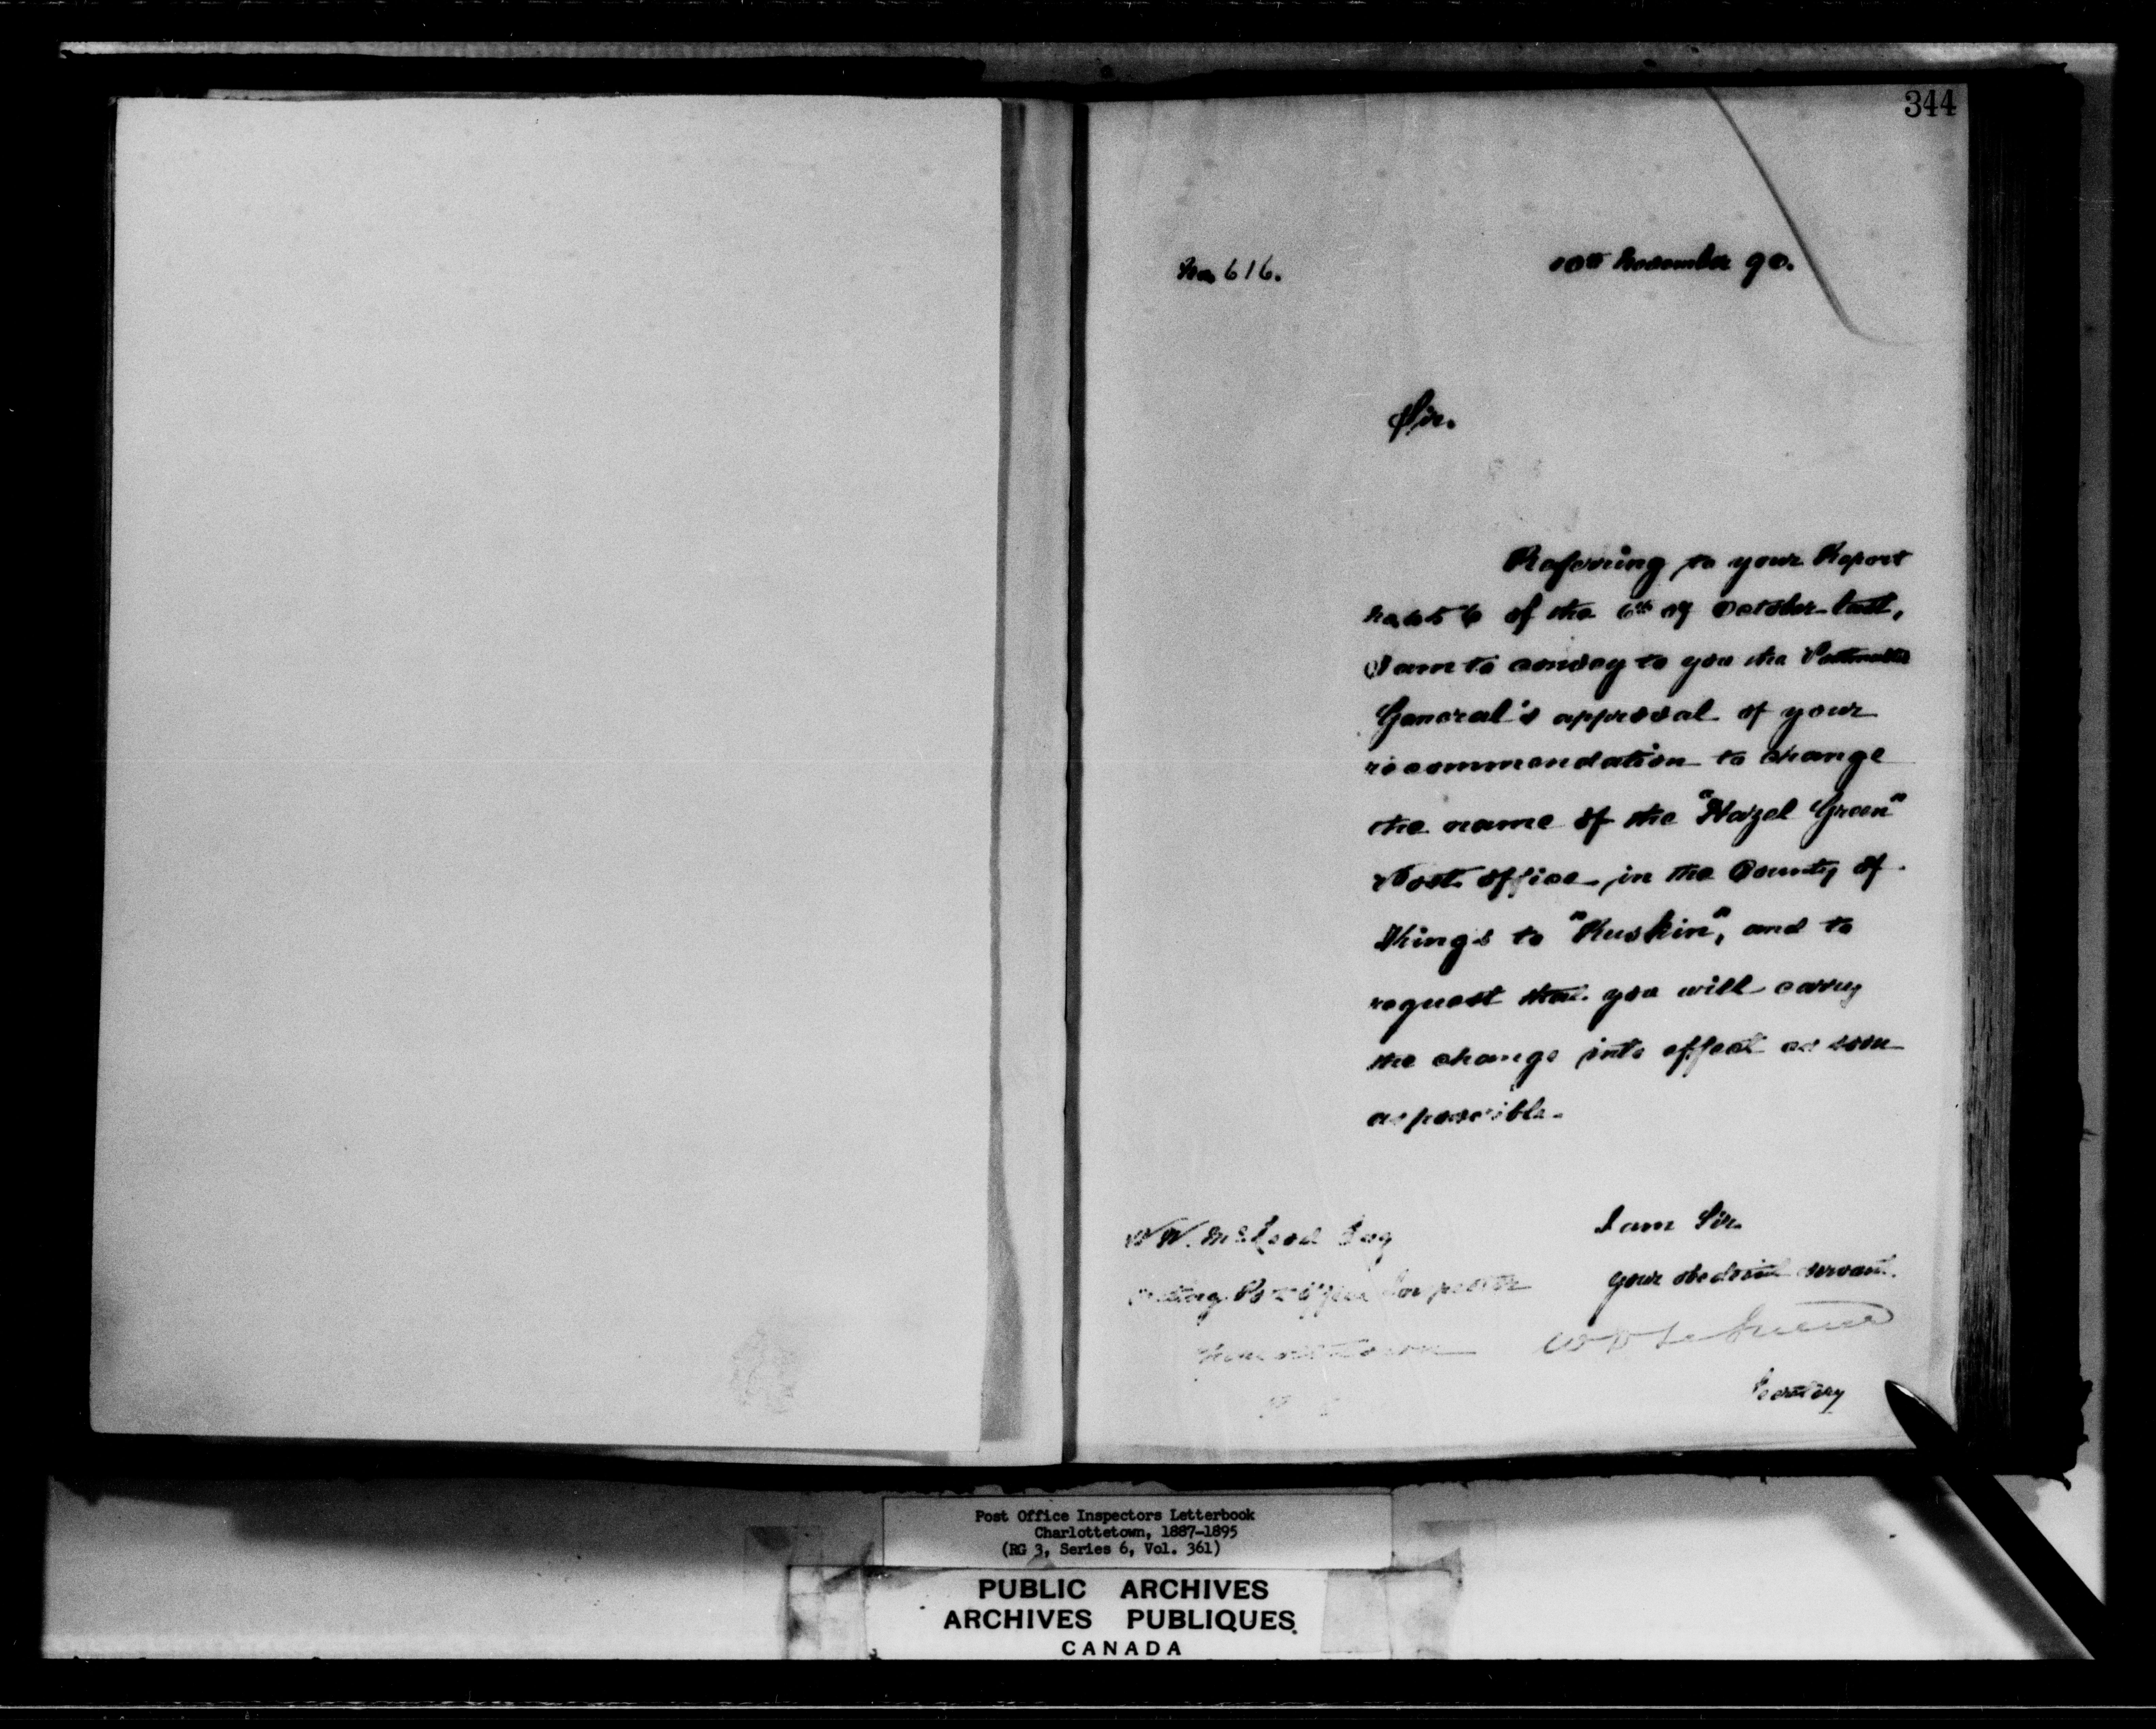 344
No 616.
10th November 90.
Sir.
Referring to your Report
No, 656 of the 6th of October last,
I am to convey to you the Postmaster
General's approval of your
recommendation to change
the name of the "Hazel Green"
Post Office in the County of
Kings to "Ruskin", and to
request that you will carry
the change into effect as soon
as possible.
I am Sir.
Your obedient servant.
Secretary
W W. McLeod Esq
Acting Post Office Inspector
Charlottetown
Post Office Inspectors Letterbook
Charlottetown, 1887-1895
(RG 3, Series 6, Vol. 361)
PUBLIC ARCHIVES
ARCHIVES PUBLIQUES
CANADA